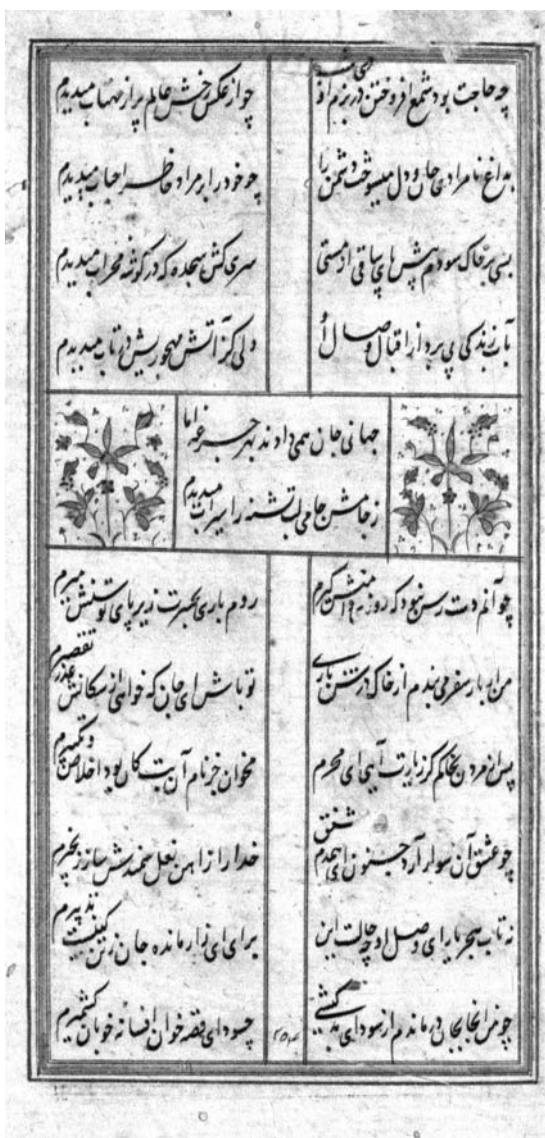 چه حاجت بود شمع افروختن در بزم او
چو از عکس رخش عالم پر از مهتاب میدیدم
بداغ نامرادی جان و دل میسوخت دشمن را
چو خود را بر مراد خاطر احباب میدیدم
بسی بر خاک سودم پیش پای ساقی از مستی
سری کش سجده که در گوشه محراب میدیدم
بآب زندگی پی برد از اقبال وصال او
دلی کز آتش مهجوریش در تاب میدیدم
جهانی جان همی دادند بهر جرعه اما
ز جامش جامی لب تشنه را سیراب میدیدم
چو آنم دست رس نبود که روزی دامنش گیرم
روم باری بحسرت زیر پای توسنش میرم
من اینک بار سفر می بندم از خاک درش باری
تو باش ای جان که خواهی از سگانش عذر تقصیرم
پس از مردن بخاکم کز زیارت آیی ای محرم
مخوان جز نام آن بت کان بود اخلاص و تکبیرم
چو عشق آن سوار آرد جنون ای همدم مشفق
خدا را ز آهن نعل سمندش ساز زنجیرم
نه تاب هجر و یارای وصل او چه حالست این
برای ای زار مانده جان ز تن کینست تدبیرم
چو من اینجا بجان درماندم از سودای بدکیشی
چه سود ای قصه خوان افسانه خوبان کشمیرم